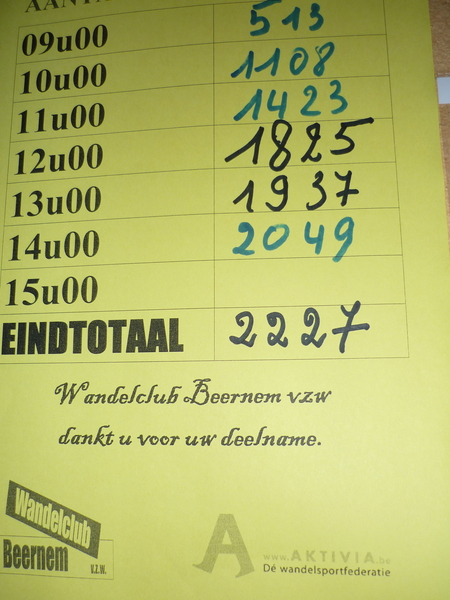 09u00 513
10u00 1108
11u00 1423
12u00 1825
13u00 1937
14u00 2049
15u00
EINDTOTAAL 2227
Wandelclub Beernem vzw
dankt u voor uw deelname.
Wandelclub
Beernem v.z.w.
A www.AKTIVIA.be
Dé wandelsportfederatie